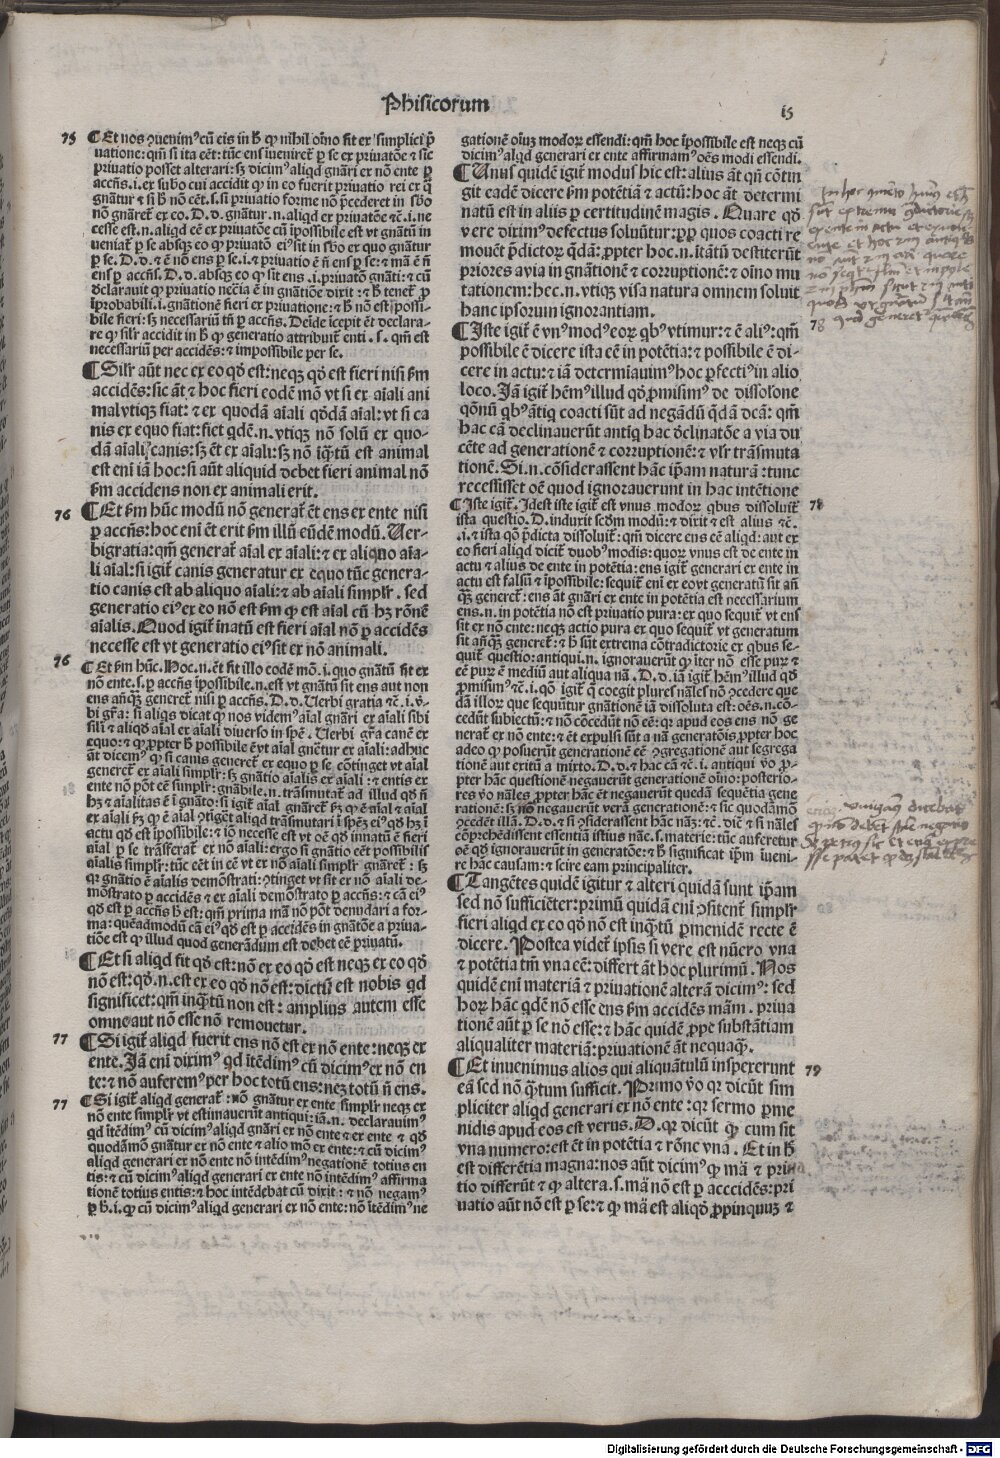 Phisicorum
15
75 ¶ Et nos ꝯuenimꝰ cũ eis in ħ ꝙ nihil oĩno fit ex simplici p̃
uatione: qm̃ si ita eẽt: tũc ens iueniret᷑ p se ex priuatõe ⁊ sic
priuatio posset alterari: sꝫ dicimꝰ aliqd gnãri ex nõ ente p
accñs .i. ex subo cui accidit ꝙ in eo fuerit priuatio rei ex
gnãtur ⁊ si ħ nõ eẽt .s. si priuatio forme nõ p̃cederet in sbo
nõ gnãret᷑ ex eo. D.d. gnãtur .n. aliqd ex priuatõe ⁊c̃ .i. ne
cesse est .n. aliqd eẽ ex priuatõe cũ ĩpossibile est vt gnãtũ in
ueniat᷑ p se absqꝫ eo ꝙ priuatõ eiꝰ sit in sbo ex quo gnãtur
p se. D.d. ⁊ ẽ nõ ens p se .i. ⁊ priuatio ẽ ñ ens p se: ⁊ mã ẽ ñ
ens p accñs. D.d. absqꝫ eo ꝙ sit ens .i. priuatõ gnãti: ⁊ cũ
declarauit ꝙ priuatio necĩa ẽ in gnãtiõe dixit: ⁊ ħ tenet᷑ ꝓ
ĩprobabili .i. gnãtionẽ fieri ex priuatione: ⁊ ħ nõ est ĩpossi-
bile fieri: sꝫ necessariũ tñ p accñs. Deĩde ĩcepit ẽt declara-
re ꝙ silr̃ accidit in ħ ꝙ generatio attribuit᷑ enti .s. qm̃ est
necessariũ per accidẽs: ⁊ impossibile per se.
¶ Silr̃ aũt nec ex eo qđ est: neqꝫ qđ est fieri nisi ẜm
accidẽs: sic ãt ⁊ hoc fieri eodẽ mõ vt si ex aĩali ani
mal vtiqꝫ fiat: ⁊ ex quodã aĩali qđdã aĩal: vt si ca
nis ex equo fiat: fiet qdẽ .n. vtiqꝫ nõ solũ ex quo-
dã aĩali canis: sꝫ ẽt ex aĩali: sꝫ nõ iq̃tũ est animal
est enĩ iã hoc: si aũt aliquid debet fieri animal nõ
ẜm accidens non ex animali erit.
76 ¶ Et ẜm hũc modũ nõ generat᷑ ẽt ens ex ente nisi
p accñs: hoc enĩ ẽt erit ẜm illũ eũdẽ modũ. Uer-
bigratia: qm̃ generat᷑ aĩal ex aĩali: ⁊ ex aliquo aĩa-
li aĩal: si igit᷑ canis generatur ex equo tũc genera-
tio canis est ab aliquo aĩali: ⁊ ab aĩali simplr̃. sed
generatio eiꝰ ex eo nõ est ẜm ꝙ est aĩal cũ hꝫ rõnẽ
aĩalis. Quod igit᷑ inatũ est fieri aĩal nõ p accidẽs
necesse est vt generatio eiꝰ sit ex nõ animali.
76 ¶ Et ẜm hũc. Hoc .n. ẽt fit illo eodẽ mõ .i. quo gnãtũ fit ex
nõ ente .s. p accñs ĩpossibile .n. est vt gnãtũ sit ens aut non
ens añqꝫ generet᷑ nisi p accñs. D.d. Uerbi gratia ⁊c̃ .i. v̾-
bi gr̃a: si aliqs dicat ꝙ nos videmꝰ aĩal gnãri ex aĩali sibi
sili ⁊ aliqđ aĩal ex aĩali diuerso in spẽ. Uerbi gr̃a canẽ ex
equo: ⁊ ꝙ ꝓpter ħ possibile ẽ vt aĩal gnẽtur ex aĩali: adhuc
ãt dicemꝰ ꝙ si canis generet᷑ ex equo p se cõtinget vt aĩal
generet᷑ ex aĩali simplr̃: sꝫ gnãtio aĩalis ex aĩali: ⁊ entis ex
ente nõ põt cẽ simplr̃: gnãbile .n. trãsmutat᷑ ad illud qđ ñ
hꝫ ⁊ aĩalitas ẽ ĩ gnãto: si igit᷑ aĩal gnãret᷑ sꝫ ꝙ ẽ aĩal ⁊ aĩal
ex aĩali sꝫ ꝙ ẽ aĩal ꝯtiget aliqd trãsmutari ĩ spẽꝫ eiꝰ qđ hꝫ ĩ
actu qđ est ĩpossibile: ⁊ iõ necesse est vt oẽ qđ innatũ ẽ fieri
aĩal p se trãsferat᷑ ex nõ aĩali: ergo si gnãtio eẽt possibilis
aĩalis simplr̃: tũc eẽt in eẽ vt ex nõ aĩali simplr̃ gnãret᷑: sꝫ
qr gnãtio ẽ aĩalis demõstrati: ꝯtinget vt sit ex nõ aĩali de-
mõstrato p accidẽs ⁊ ex aĩali demõstrato p accñs: ⁊ cã eiꝰ
qđ est p accñs ħ est: qm̃ prima mã nõ põt denudari a for-
ma: quẽadmodũ cã eiꝰ qđ est p accidẽs in gnãtõe a priua-
tiõe est ꝙ illud quod generãdum est debet eẽ priuatũ.
¶ Et si aliqd fit qđ est: nõ ex eo qđ est neqꝫ ex eo qđ
nõ est: qđ .n. est ex eo qđ nõ est: dictũ est nobis qd
significet: qm̃ inq̃tũ non est: amplius autem esse
omne aut nõ esse nõ remouetur.
77 ¶ Si igit᷑ aliqd fuerit ens nõ est ex nõ ente: neqꝫ ex
ente. Jã enĩ diximꝰ qd ĩtẽdimꝰ cũ dicimꝰ ex nõ en
te: ⁊ nõ auferemꝰ per hoc totũ ens: neqꝫ totũ ñ ens.
77 ¶ Si igit᷑ aliqd generat᷑: nõ gnãtur ex ente simplr̃ neqꝫ ex
nõ ente simplr̃ vt estimauerũt antiqui: iã .n. declarauimꝰ
qd ĩtẽdimꝰ cũ dicimꝰ aliqd gnãri ex nõ ente ⁊ ex ente ⁊ qđ
quodãmõ gnãtur ex nõ ente ⁊ alio mõ ex ente: ⁊ cũ dicimꝰ
aliqd generari ex nõ ente nõ intẽdimꝰ negationẽ totius en
tis: ⁊ cũ dicimꝰ aliqd generari ex ente nõ intẽdimꝰ affirma
tionẽ totius entis: ⁊ hoc intẽdebat cũ dixit: ⁊ nõ negamꝰ
p ħ .i. ꝙ cũ dicimꝰ aliqd generari ex nõ ente: nõ ĩtẽdimꝰ ne
gationẽ oĩuꝫ modoꝝ essendi: qm̃ hoc ĩpossibile est neqꝫ cũ
dicimꝰ alqd generari ex ente affirmamꝰ oẽs modi essendi.
¶ Unus quidẽ igit᷑ modus hic est: alius ãt qñ cõtin
git eadẽ dicere ẜm potẽtiã ⁊ actũ: hoc ãt determi
natũ est in aliis p certitudinẽ magis. Quare qđ
vere diximꝰ defectus soluũtur: ꝓp quos coacti re
mouẽt p̃dictoꝝ q̃dã: ꝓpter hoc .n. ĩtãtũ destiterũt
priores a via in gnãtionẽ ⁊ corruptionẽ: ⁊ oĩno mu
tationem: hec .n. vtiqꝫ visa natura omnem soluit
hanc ipsorum ignorantiam.
78 ¶ Iste igit᷑ ẽ vnꝰ modꝰ eoꝝ qbꝰ vtimur: ⁊ ẽ aliꝰ: qm̃
possibile ẽ dicere ista eẽ in potẽtia: ⁊ possibile ẽ di-
cere in actu: ⁊ iã determiauimꝰ hoc ꝑfectiꝰ in alio
loco. Jã igit᷑ hẽmꝰ illud qđ ꝓmisimꝰ de dissolõne
qõnũ qbꝰ ãtiq coacti sũt ad negãdũ q̃dã dcã: qm̃
hac cã declinauerũt antiq hac declinatõe a via du
cẽte ad generationẽ ⁊ corruptionẽ: ⁊ vlr̃ trãsmuta
tionẽ. Si .n. cõsiderassent hãc ip̃am naturã: tunc
recessisset oẽ quod ignorauerunt in hac intẽtione
78 ¶ Iste igit᷑. Idest iste igit᷑ est vnus modoꝝ qbus dissoluit᷑
ista questio. D. induxit scđm modũ: ⁊ dixit ⁊ est alius ⁊c̃.
.i. ⁊ ista qõ p̃dicta dissoluit᷑: qm̃ dicere ens eẽ aliqd: aut ex
eo fieri aliqd dicit᷑ duobꝰ modis: quoꝝ vnus est de ente in
actu ⁊ alius de ente in potẽtia: ens igit᷑ generari ex ente in
actu est falsũ ⁊ ĩpossibile: sequit᷑ enĩ ex eo vt generatũ sit añ
q̃ꝫ generet᷑: ens ãt gnãri ex ente in potẽtia est necessarium
ens .n. in potẽtia nõ est priuatio pura: ex quo sequit᷑ vt ens
sit ex nõ ente: neqꝫ actio pura ex quo sequit᷑ vt generatum
sit añq̃ꝫ generet᷑: ⁊ ħ sũt extrema cõtradictorie ex qbus se-
quit᷑ questio: antiqui .n. ignorauerũt ꝙ ĩter nõ esse pur ⁊
eẽ pur̃ ẽ mediũ aut aliqua nã. D.d. iã igit᷑ hẽmꝰ illud qđ
ꝓmisimꝰ ⁊c̃ .i. qõ igit᷑ q̃ coegit plures nãles nõ ꝯcedere que
dã illoꝝ que sequũtur gnãtionẽ iã dissoluta est: oẽs .n. cõ-
cedũt subiectũ: ⁊ nõ cõcedũt nõ eẽ: qr apud eos ens nõ ge
nerat᷑ ex nõ ente: ⁊ ẽt expulsi sũt a nã generatõis ꝓpter hoc
adeo ꝙ posuerũt generationẽ eẽ ꝯgregationẽ aut segrega
tionẽ aut exitũ a mixto. D.d. ⁊ hac cã ⁊c̃ .i. antiqui v̾o ꝓ-
pter hãc questionẽ negauerũt generationẽ oĩno: posterio-
res v̾o nãles ꝓpter hãc ẽt negauerũt quedã sequẽtia gene
rationẽ: sꝫ nõ negauerũt verã generationẽ: ⁊ sic quodãmõ
ꝯcedẽt illã. D.d. ⁊ si ꝯsiderassent hãc nãꝫ: ⁊c̃. dic̃ ⁊ si nãles
cõprehẽdissent essentiã istius nãe .s. materie: tũc auferetur
oẽ qđ ignorauerũt in generatõe: ⁊ ħ significat ip̃m iueni-
re hãc causam: ⁊ scire eam principaliter.
¶ Tangẽtes quidẽ igitur ⁊ alteri quidã sunt ip̃am
sed nõ sufficiẽter: primũ quidã enĩ ꝯfitent᷑ simplr̃
fieri aliqd ex eo qđ nõ est inq̃tũ ꝑmenidẽ recte ẽ
dicere. Postea videt᷑ ipsis si vere est nũero vna
⁊ potẽtia tm̃ vna eẽ: differt ãt hoc plurimũ. Nos
quidẽ enĩ materiã ⁊ priuationẽ alterã dicimꝰ: sed
hoꝝ hãc qdẽ nõ esse ens ẜm accidẽs mãm. priua
tionẽ aũt p se nõ esse: ⁊ hãc quidẽ ꝓpe substãtiam
aliqualiter materiã: priuationẽ ãt nequaq̃.
79 ¶ Et inuenimus alios qui aliquãtulũ inspexerunt
eã sed nõ q̃tum sufficit. Primo v̾o qr dicũt sim
pliciter aliqd generari ex nõ ente: qr sermo ꝑme
nidis apud eos est verus. D. qr dicũt ꝙ cum sit
vna numero: est ẽt in potẽtia ⁊ rõne vnã. Et in ħ
est differẽtia magna: nos aũt dicimꝰ ꝙ mã ⁊ pri-
tio differũt ⁊ ꝙ altera .s. mã nõ est p acccidẽs: pri
uatio aũt nõ est p se: ⁊ ꝙ mã est aliqđ ꝓpinquuꝫ ⁊
Digitalisierung gefördert durch die Deutsche Forschungsgemeinschaft - DFG